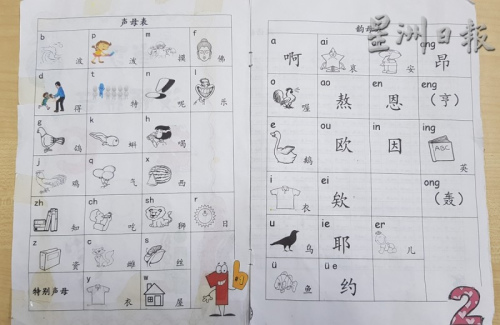 星洲日報
声母表
b p m f
波 泼 摸 佛
d t n l
得 特 呢 乐
g k h
鸽 蝌 喝
j q x
鸡 气 西
zh ch sh r
知 吃 狮 日
z c s
资 雌 丝
特别声母 y w
衣 屋
韵母
a ai ang
啊 哀 安 昂
o ao en eng
喔 熬 恩 (亨)
e ou in ing
鹅 欧 因 ABC 英
i ei ong
衣 欸 (轰)
u ie er
乌 耶 儿
ü üe
鱼 约
2